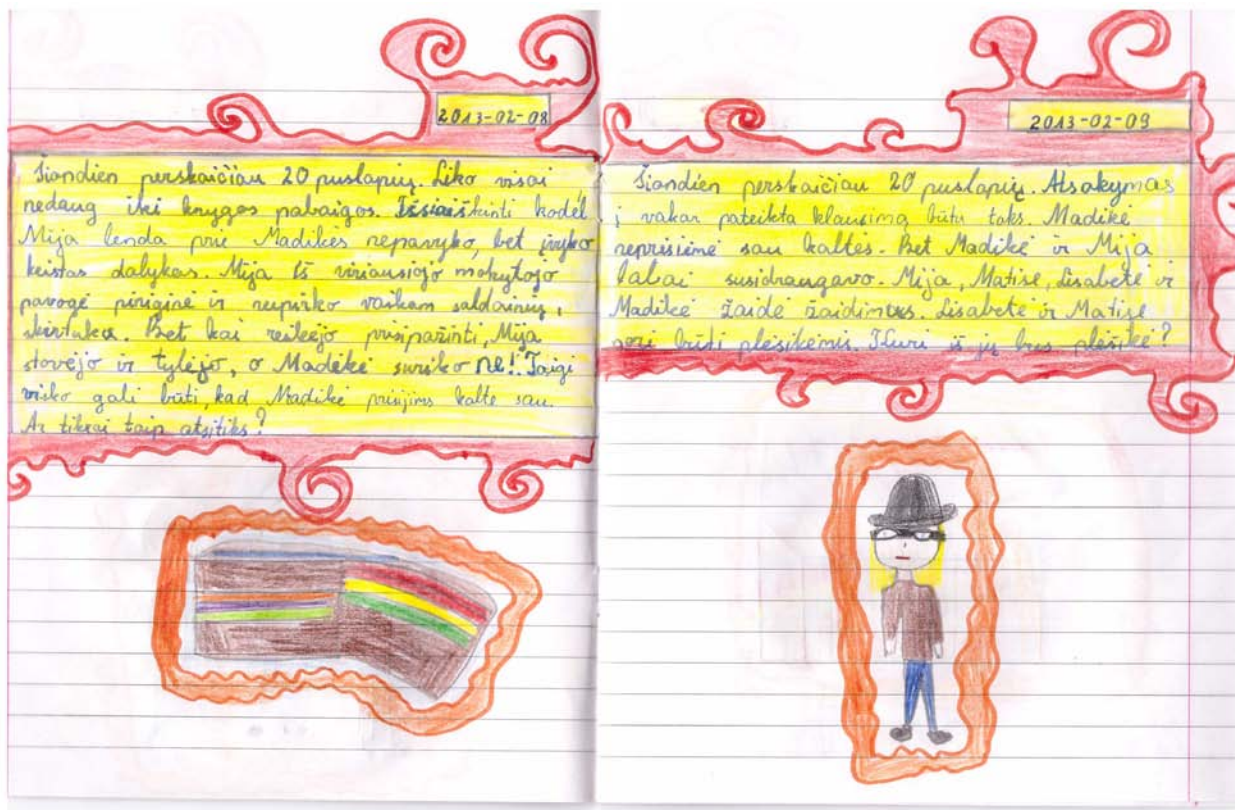 2013-02-08
Šiandien perskaičiau 20 puslapių. Liko visai
nedaug iki knygos pabaigos. Išsiaiškinti kodėl
Mija lenda prie Madikės nepavyko, bet įvyko
keistas dalykas. Mija iš vyriausiojo mokytojo
pavogė piniginę ir nupirko vaikam saldainių,
skirtukų. Bet kai reikėjo prisipažinti, Mija
stovėjo ir tylėjo, o Madikė suriko ne!. Taigi
visko gali būti, kad Madikė prisiims kaltę sau.
Ar tikrai taip atsitiks?
2013-02-09
Šiandien perskaičiau 20 puslapių. Atsakymas
į vakar pateikta klausimą būtu toks. Madikė
neprisiėmė sau kaltės. Bet Madikė ir Mija
labai susidraugavo. Mija, Matisė, Lisabetė ir
Madikė žaidė žaidimus. Lisabetė ir Matisė
nori būti plėšikėmis. Kuri iš jų bus plėšikė?